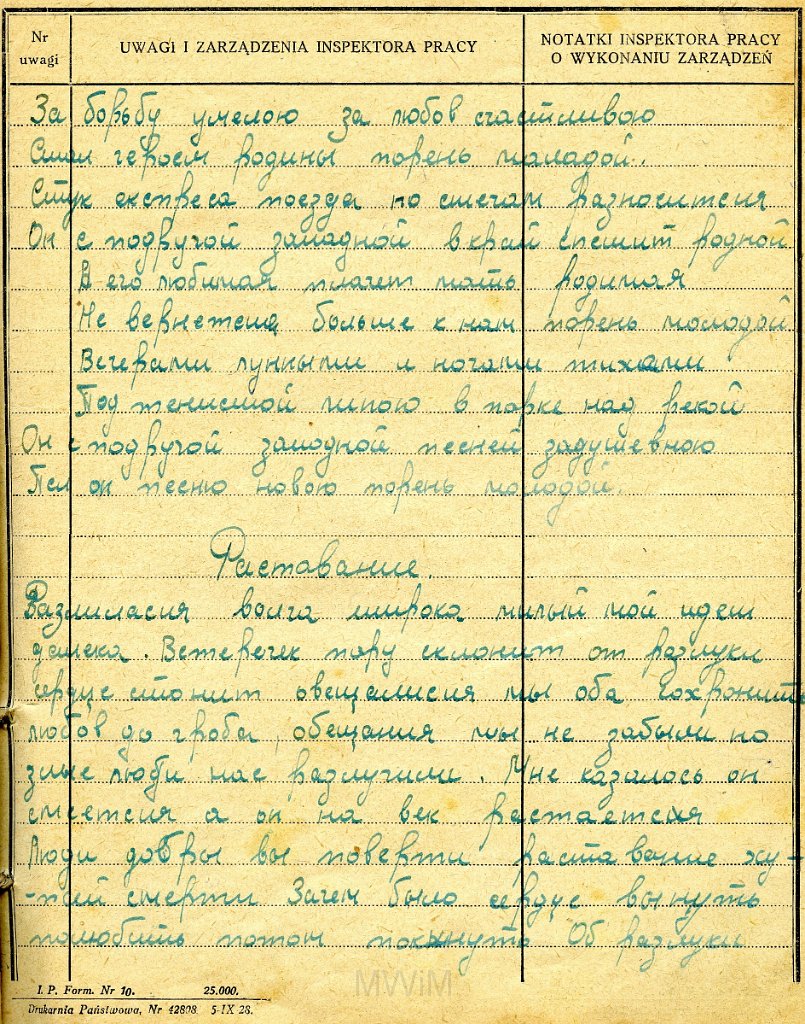 Nr uwagi
UWAGI I ZARZĄDZENIA INSPEKTORA PRACY
NOTATKI INSPEKTORA PRACY
O WYKONANIU ZARZĄDZEŃ
За борьбу умелою за любов счастливою
Стал героем родины порень маладой.
Стук експреса поезда по степам разноситсия
Он с подругой западной в край спешит родной
А его любимая плачет мать родимая
Не вернетсиа больше к нам порень молодой
Вечерами лунными и ночами тихами
Под тенистой липою в парке над рекой
Он с подругой западной песней задушевною
Пел он песню новою порень молодой.
Раставание.
Разлиласия волга широка милый мой идет
далека. Ветеречек пору склонит от разлуки
сердце стонит овещалисия мы оба сохронить
любов до гроба, обещания мы не забыли но
злые люди нас разлучили. Мне казалось он
смеетсия а он на век растаетсия
Люди добры вы поверти раставание ху-
-жей смерти Зачем было сердце вынуть
полюбить потом покынуть Об разлуки
I. P. Form. Nr 10. 25.000.
Drukarnia Państwowa, Nr 42808. 5-IX 28.
MWiM